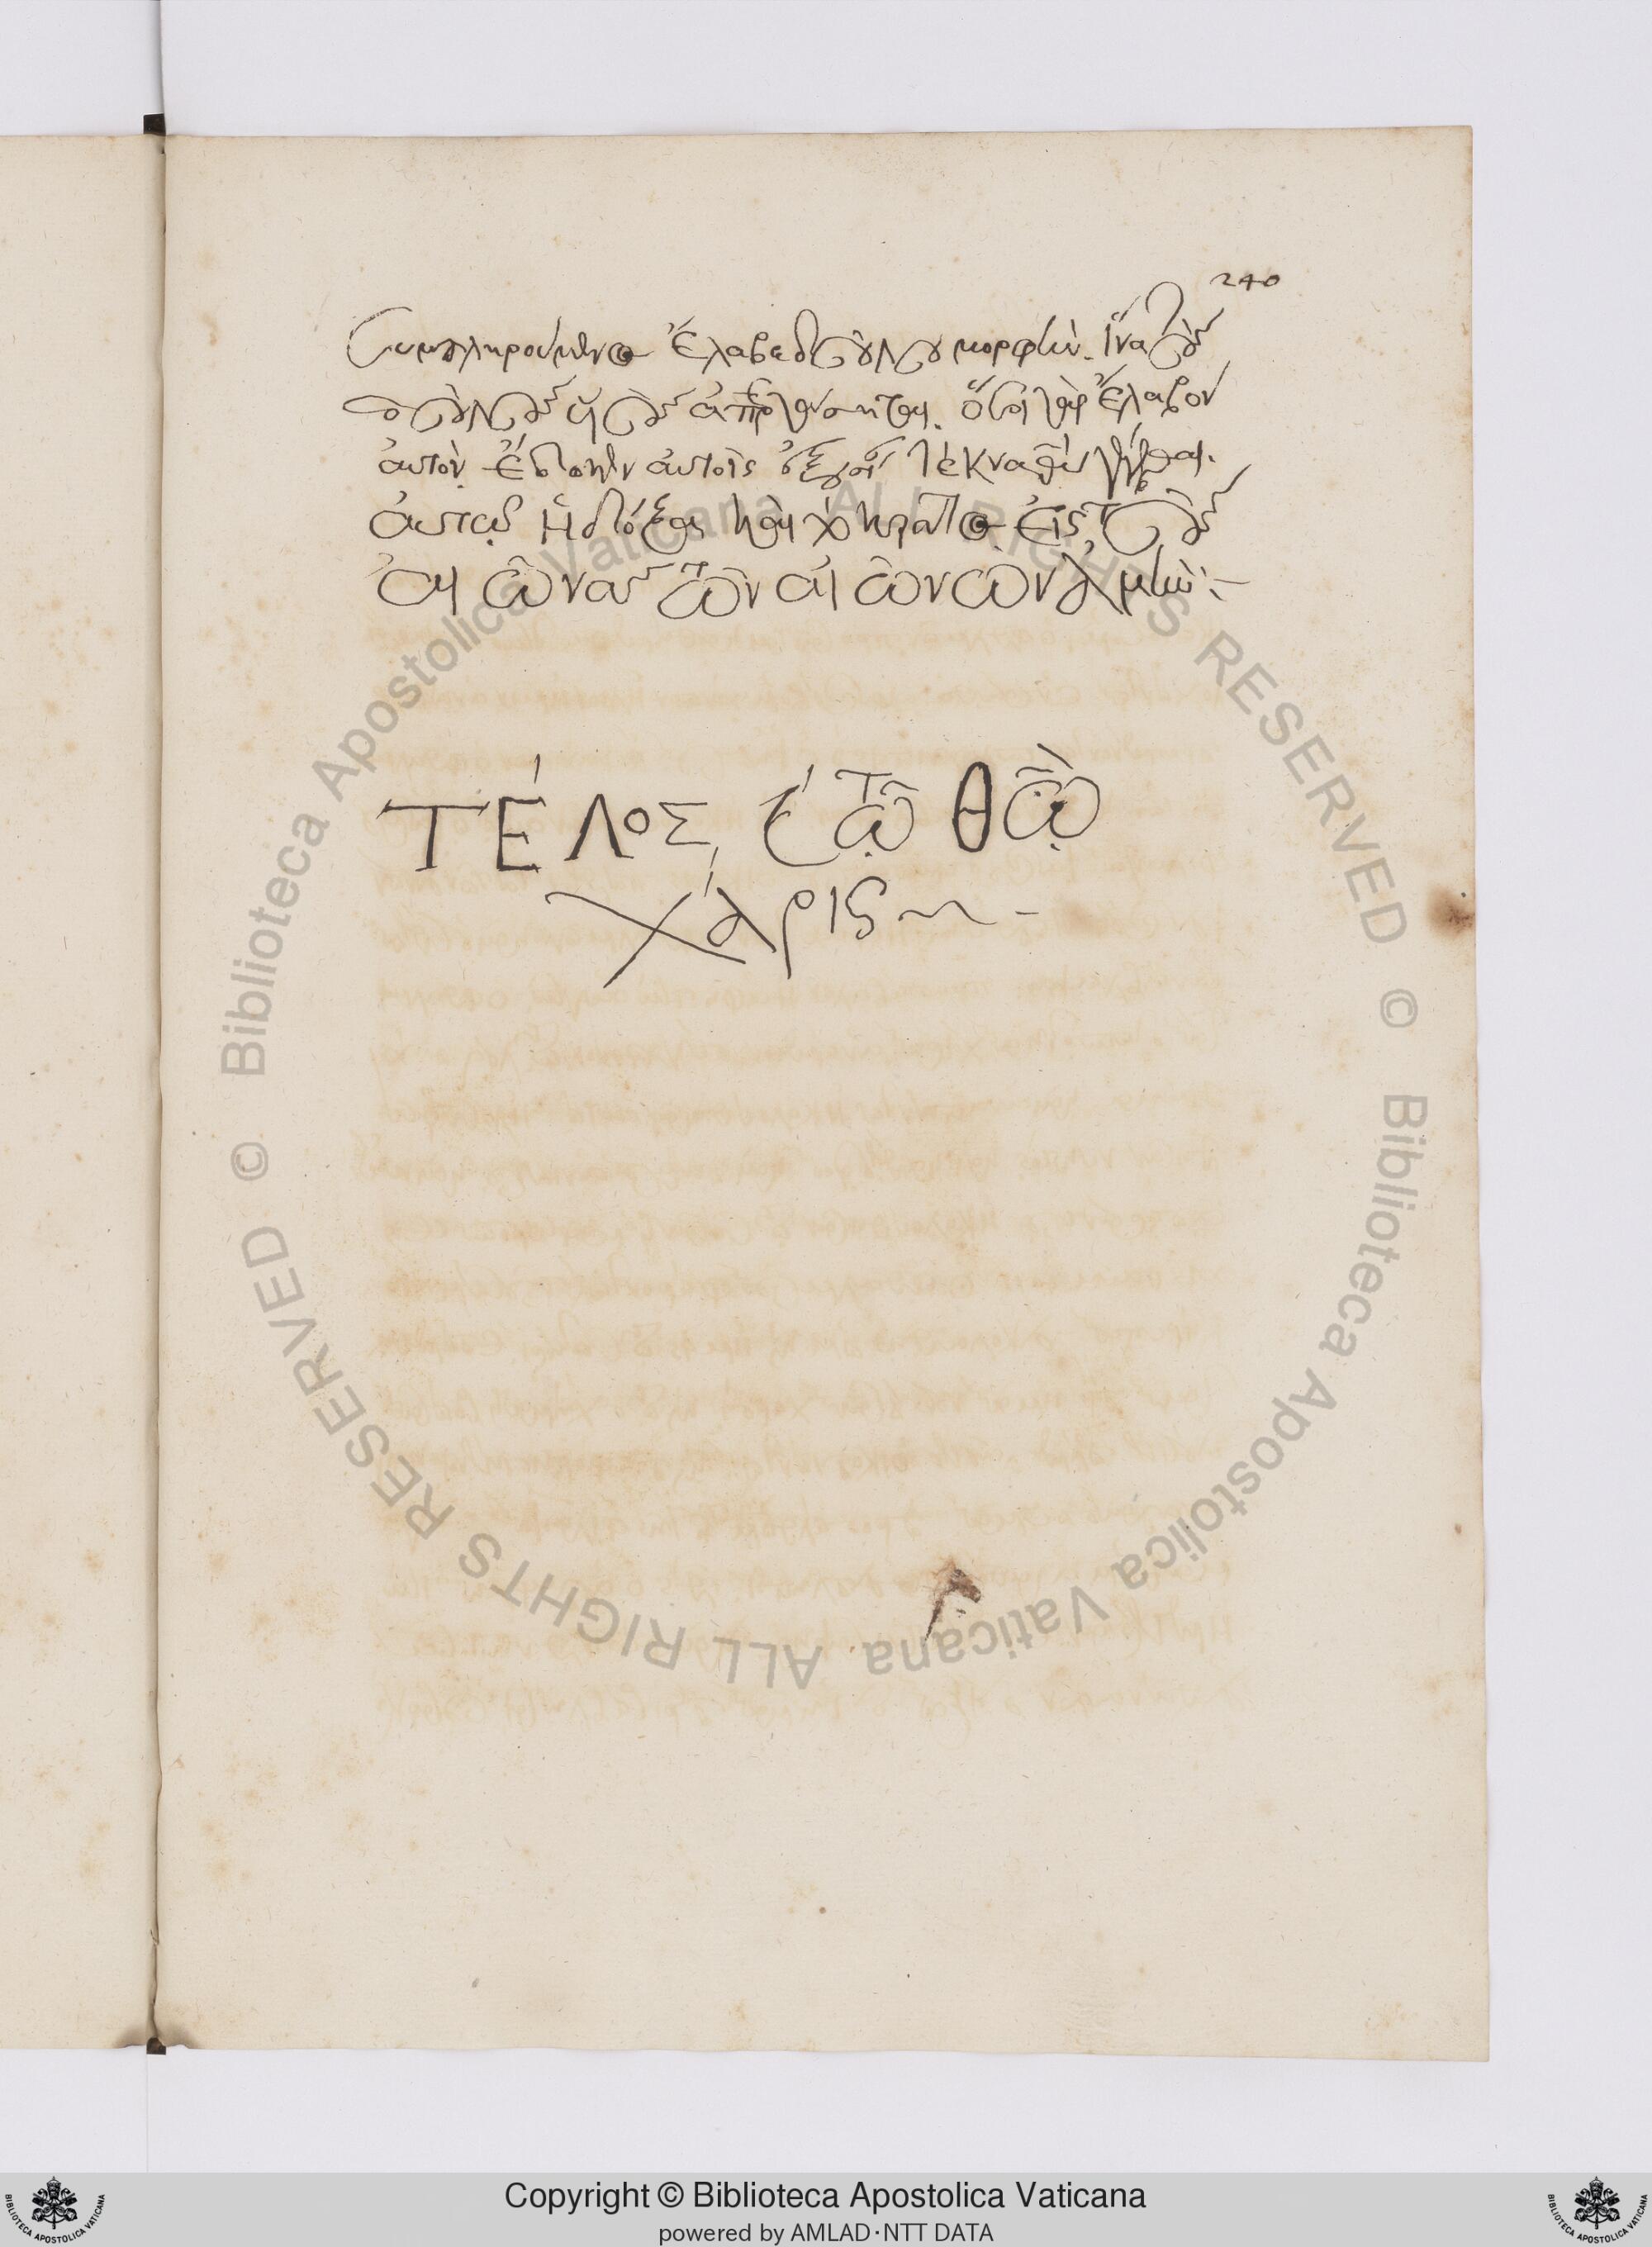 240
συμπληρούμενος ἔλαβε δούλου μορφὴν. ἵνα τοὺς
δούλους υἱοὺς ἀπεργάσηται. ὅσοι γὰρ ἔλαβον
αὐτὸν. ἔδωκεν αὐτοῖς ἐξουσίαν τέκνα θεοῦ γενέσθαι.
αὐτῷ ἡ δόξα καὶ τὸ κράτος εἰς τοὺς
αἰῶνας τῶν αἰώνων ἀμήν:-
ΤΈΛΟΣ, τῷ θῷ
χάρις -
Copyright © Biblioteca Apostolica Vaticana
powered by AMLAD·NTT DATA
© Biblioteca Apostolica Vaticana ALL RIGHTS RESERVED
© Biblioteca Apostolica Vaticana ALL RIGHTS RESERVED